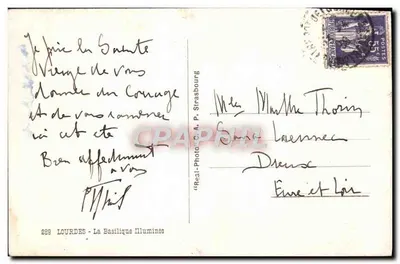 Je prie la Sainte
Vierge de vous
donner du Courage
et de vous ramener
ici cet été
Bien affectueusement
à vous
222 LOURDES - La Basilique Illuminée
"Real-Photo" C. A. P. Strasbourg
CPARAMA
POSTES
Marthe Thorin
Laennec
Dreux
Eure et Loir